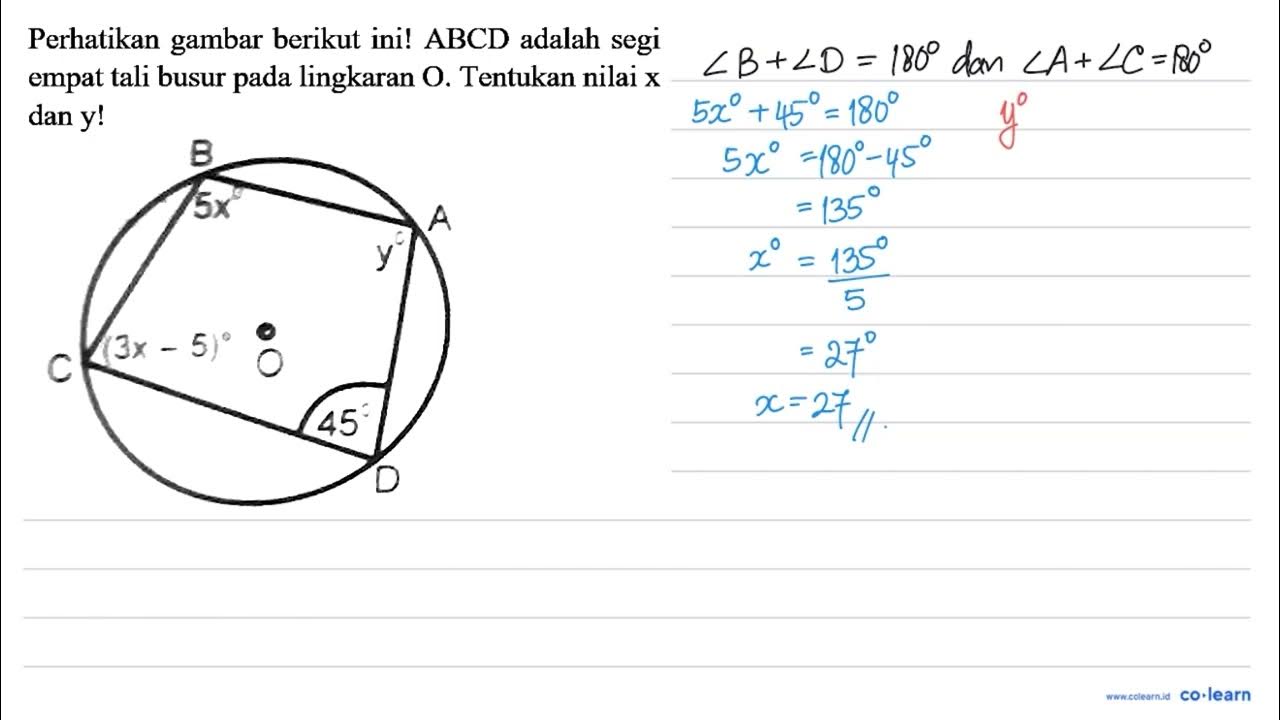 Perhatikan gambar berikut ini! ABCD adalah segi
empat tali busur pada lingkaran O. Tentukan nilai x
dan y!
B
5x°
A
y°
C
(3x - 5)°
O
45°
D
∠B+∠D = 180° dan ∠A+∠C = 180°
5x° + 45° = 180°
y°
5x° = 180° - 45°
= 135°
x° = 135°
5
= 27°
x = 27 //.
www.colearn.id co·learn